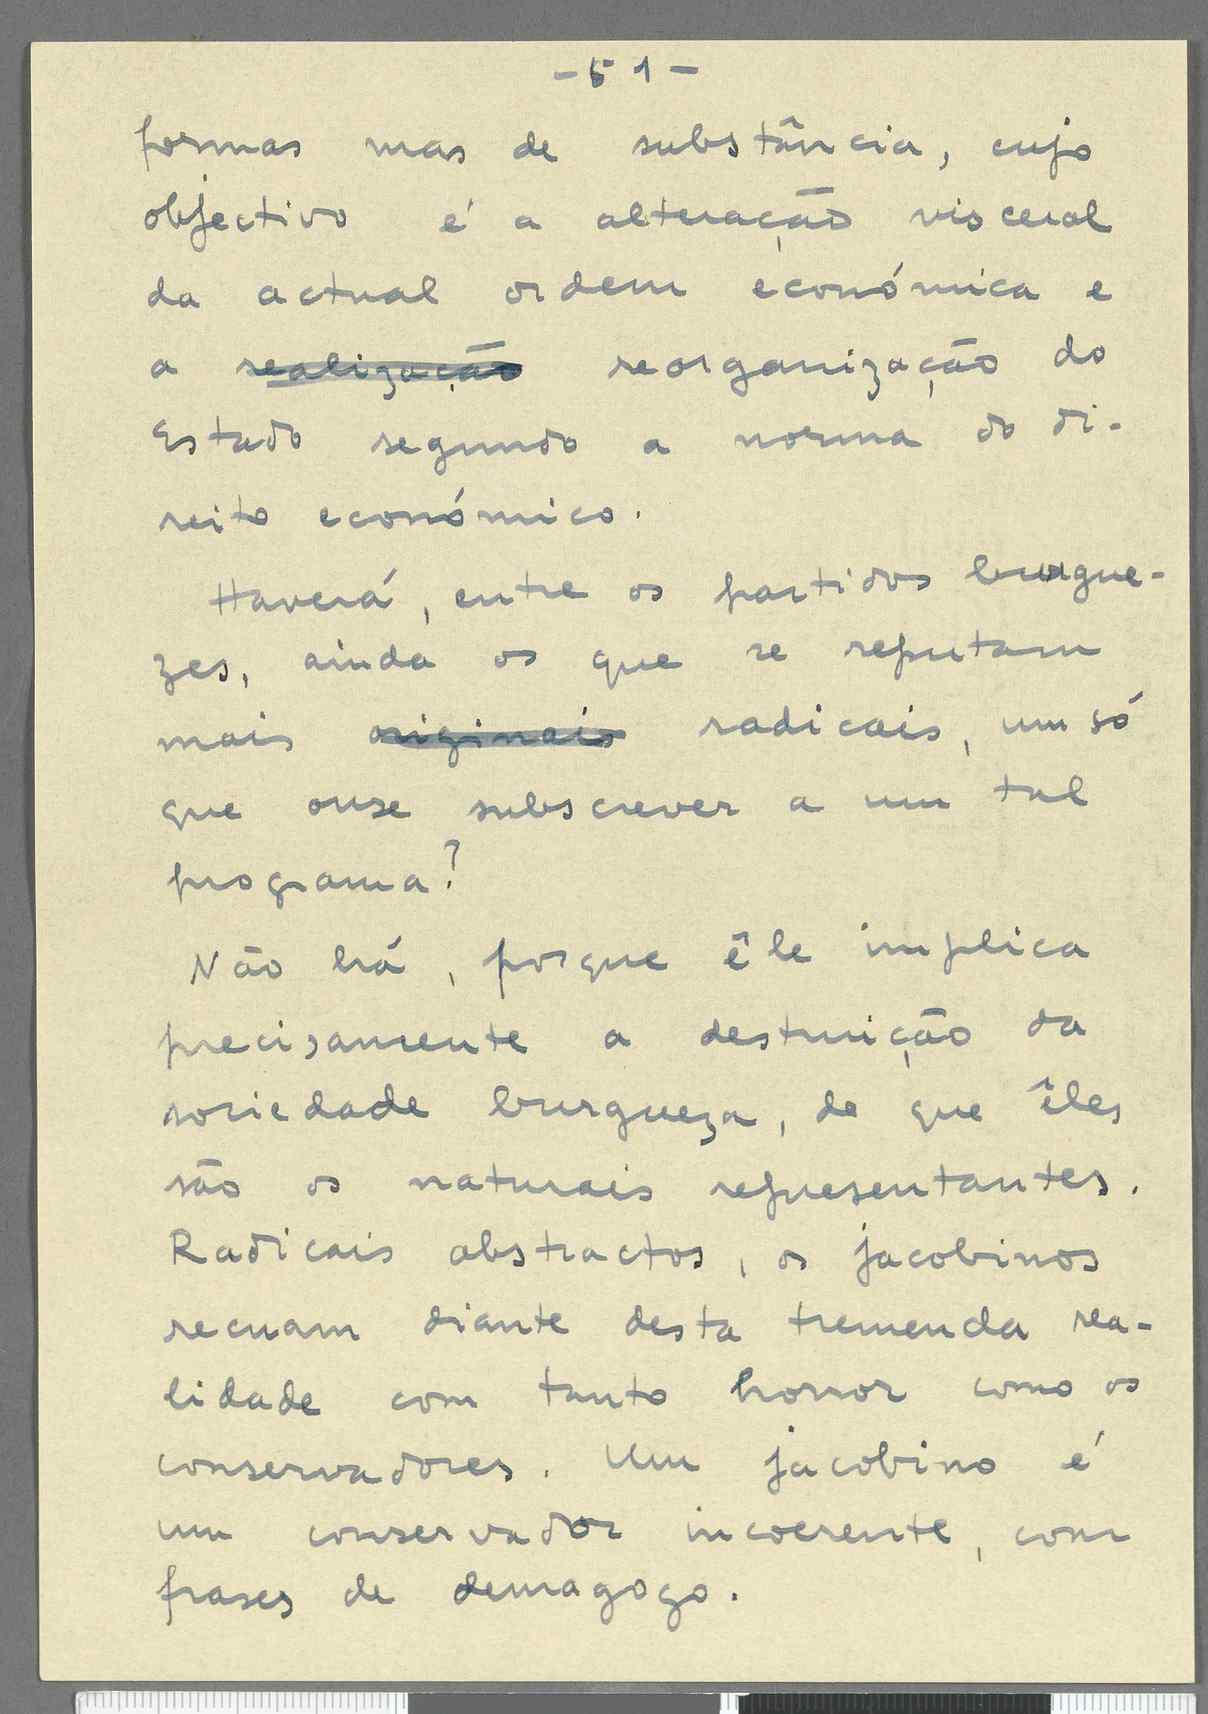 - 51 -
formas mas de substância, cujo
objectivo é a alteração visceral
da actual ordem económica e
a realização reorganização do
Estado segundo a norma do di-
reito económico.
Haverá, entre os partidos burgue-
zes, ainda os que se reputam
mais originais radicais, um só
que ouse subscrever a um tal
programa?
Não há, porque êle implica
precisamente a destruição da
sociedade burgueza, de que êles
são os naturais representantes.
Radicais abstractos, os jacobinos
recuam diante desta tremenda rea-
lidade com tanto horror como os
conservadores. Um jacobino é
um conservador incoerente, com
frases de demagogo.